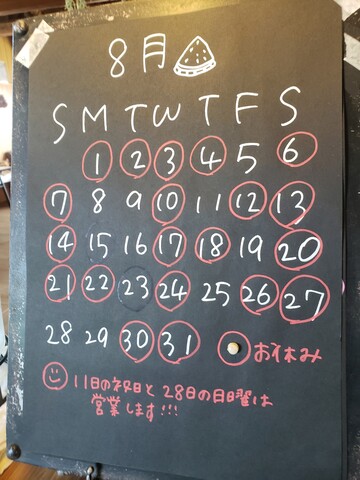 8月
S M T W T F S
1 2 3 4 5 6
7 8 9 10 11 12 13
14 15 16 17 18 19 20
21 22 23 24 25 26 27
28 29 30 31 お休み
11日の祝日と28日の日曜は
営業します!!!